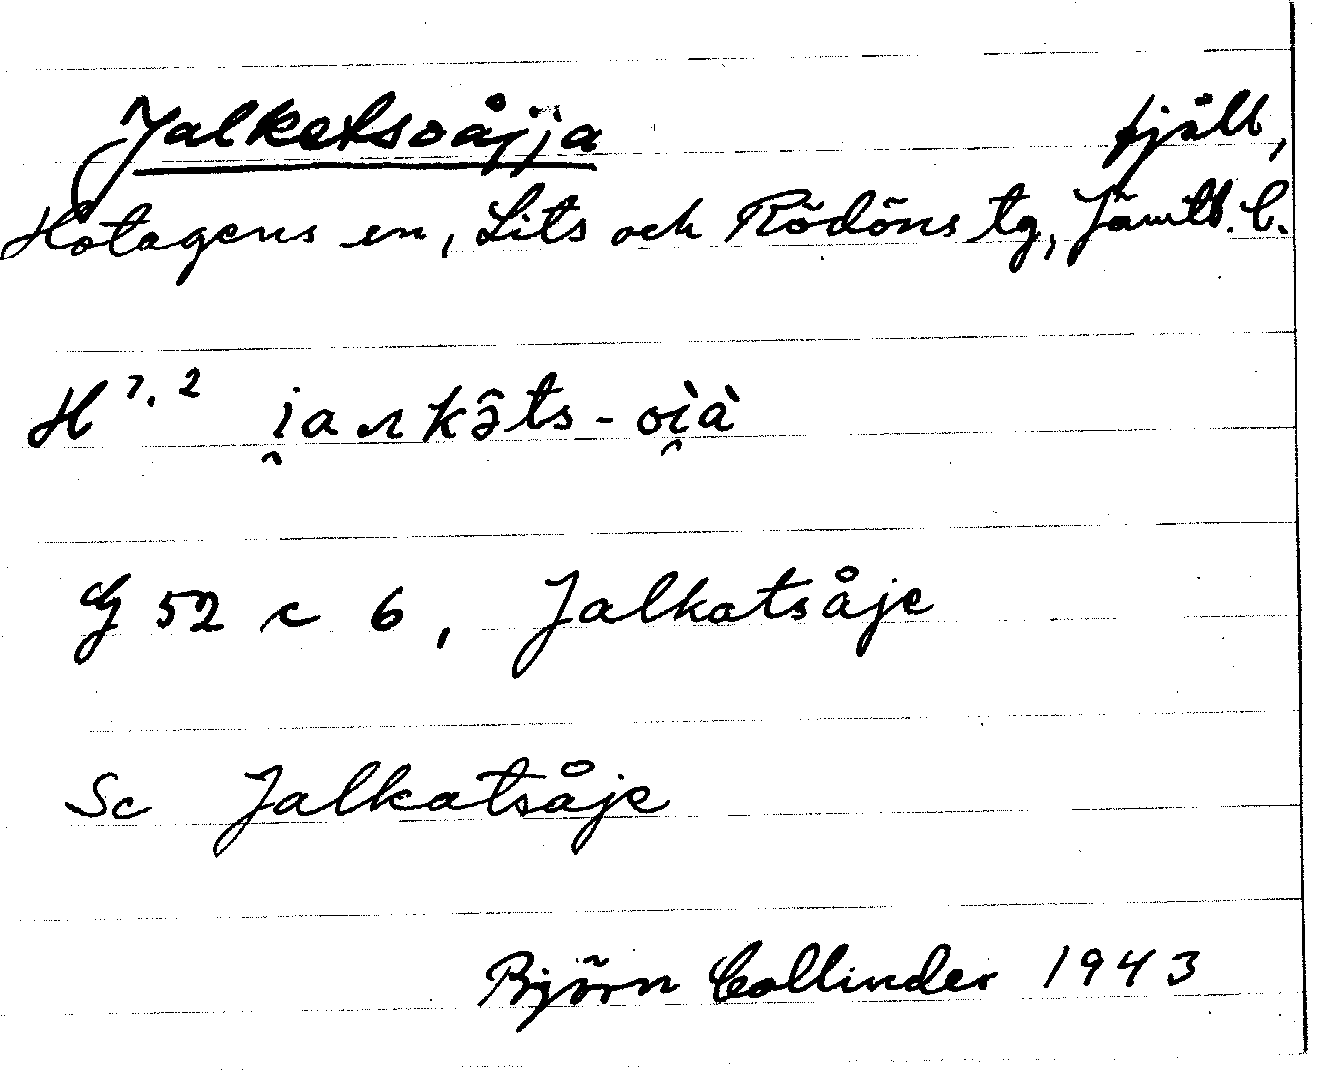 Jalketsoåjja fjäll,
Hotagens sn, Lits och Rödöns tg, Jämtl. l.
H 7, 2 i̯aʌkə̂ts - oì̯à
G 52 c 6, Jalkatsåje
Sc Jalkatsåje
Björn Collinder 1943